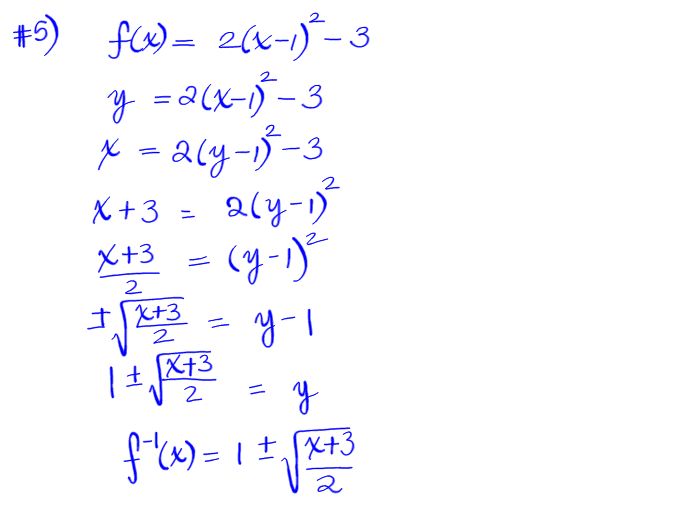 #5) f(x) = 2(x-1)² - 3
y = 2(x-1)² - 3
x = 2(y-1)² - 3
x+3 = 2(y-1)²
x+3/2 = (y-1)²
±√(x+3/2) = y-1
1 ± √(x+3/2) = y
f⁻¹(x) = 1 ± √(x+3/2)